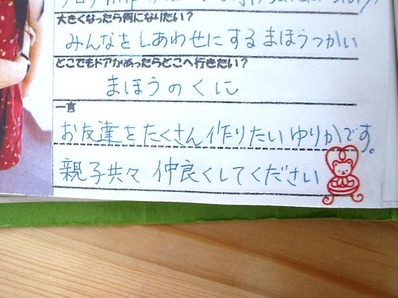 大きくなったら何になりたい?
みんなをしあわせにするまほうつかい
どこでもドアがあったらどこへ行きたい?
まほうのくに
一言
お友達をたくさん作りたいゆりかです。
親子共々 仲良くしてください